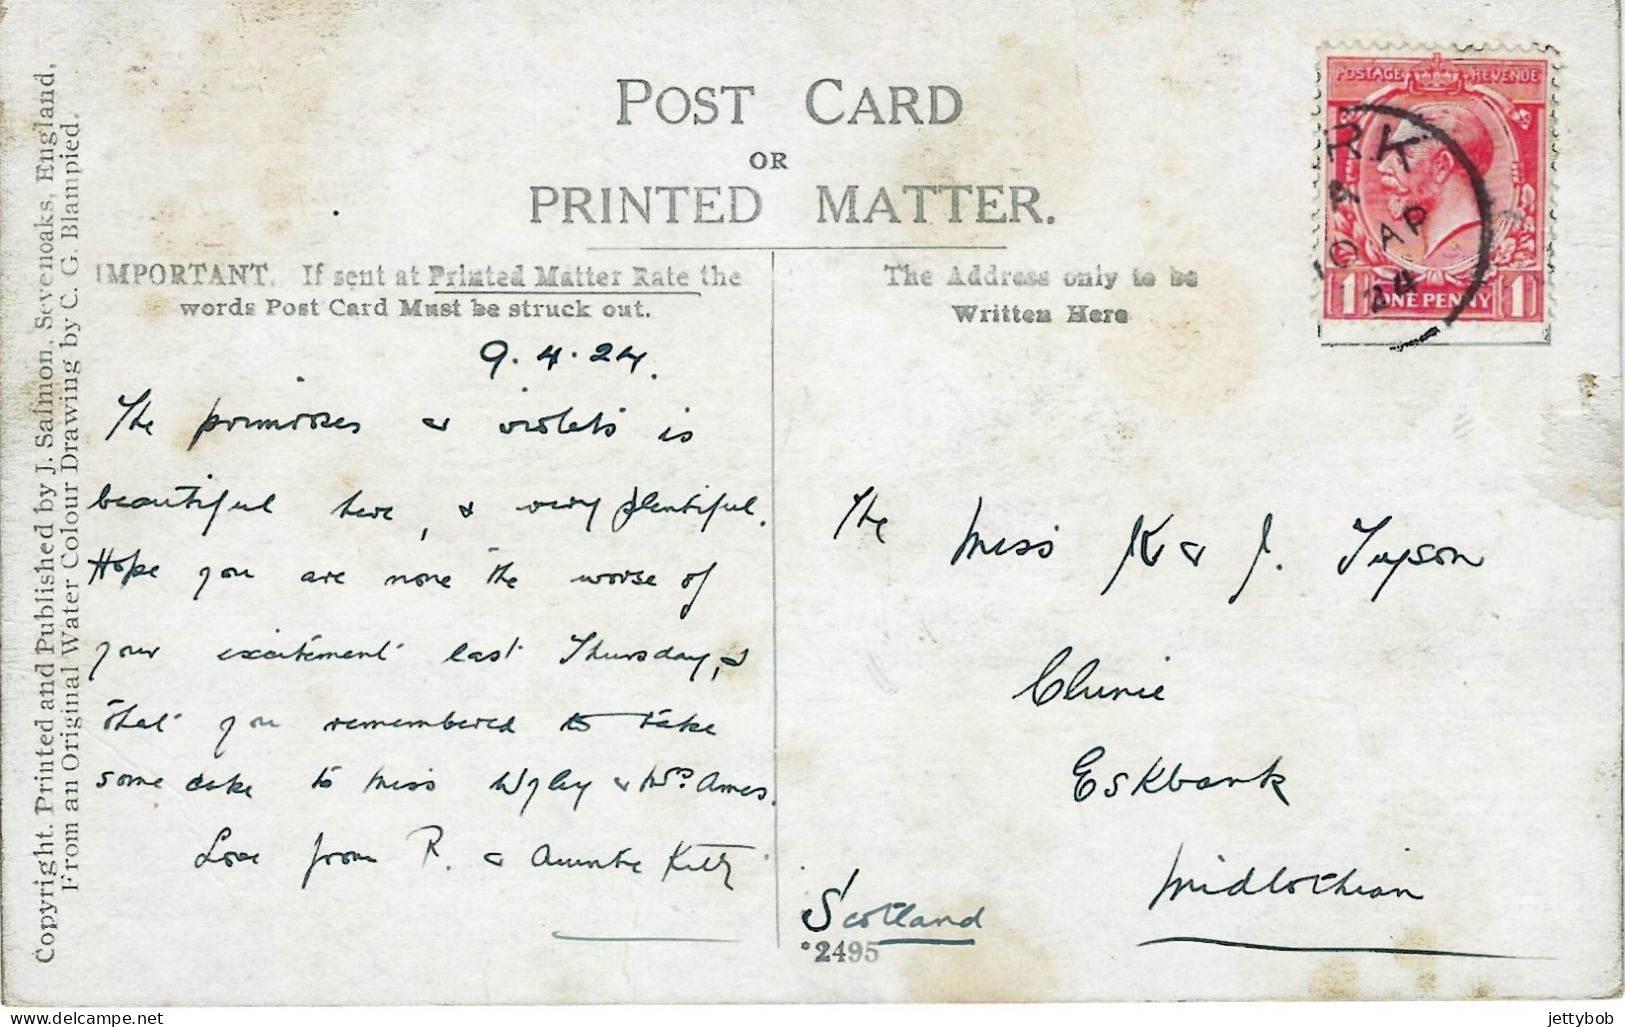 Copyright. Printed and Published by J. Salmon, Sevenoaks, England.
From an Original Water Colour Drawing by C. G. Blampied.
POST CARD
OR
PRINTED MATTER.
IMPORTANT. If sent at Printed Matter Rate the
words Post Card Must be struck out.
The Address only to be
Written Here
POSTAGE REVENUE
1 ONE PENNY 1
RK
A
10 AP
24
9.4.24.
The primroses & violets is
beautiful here, & very plentiful.
Hope you are none the worse of
your excitement last Thursday, &
that you remembered to take
some cake to Miss & Mrs. Ames.
Love from R. & Auntie Kitty
The Miss K & J. Tyson
Clunie
Eskbank
Midlothian
Scotland
*2495
delcampe.net
jettybob